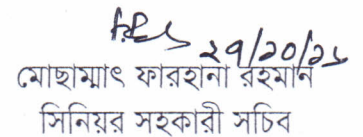 ২৭/১০/২১
মোছাম্মাৎ ফারহানা রহমান
সিনিয়র সহকারী সচিব